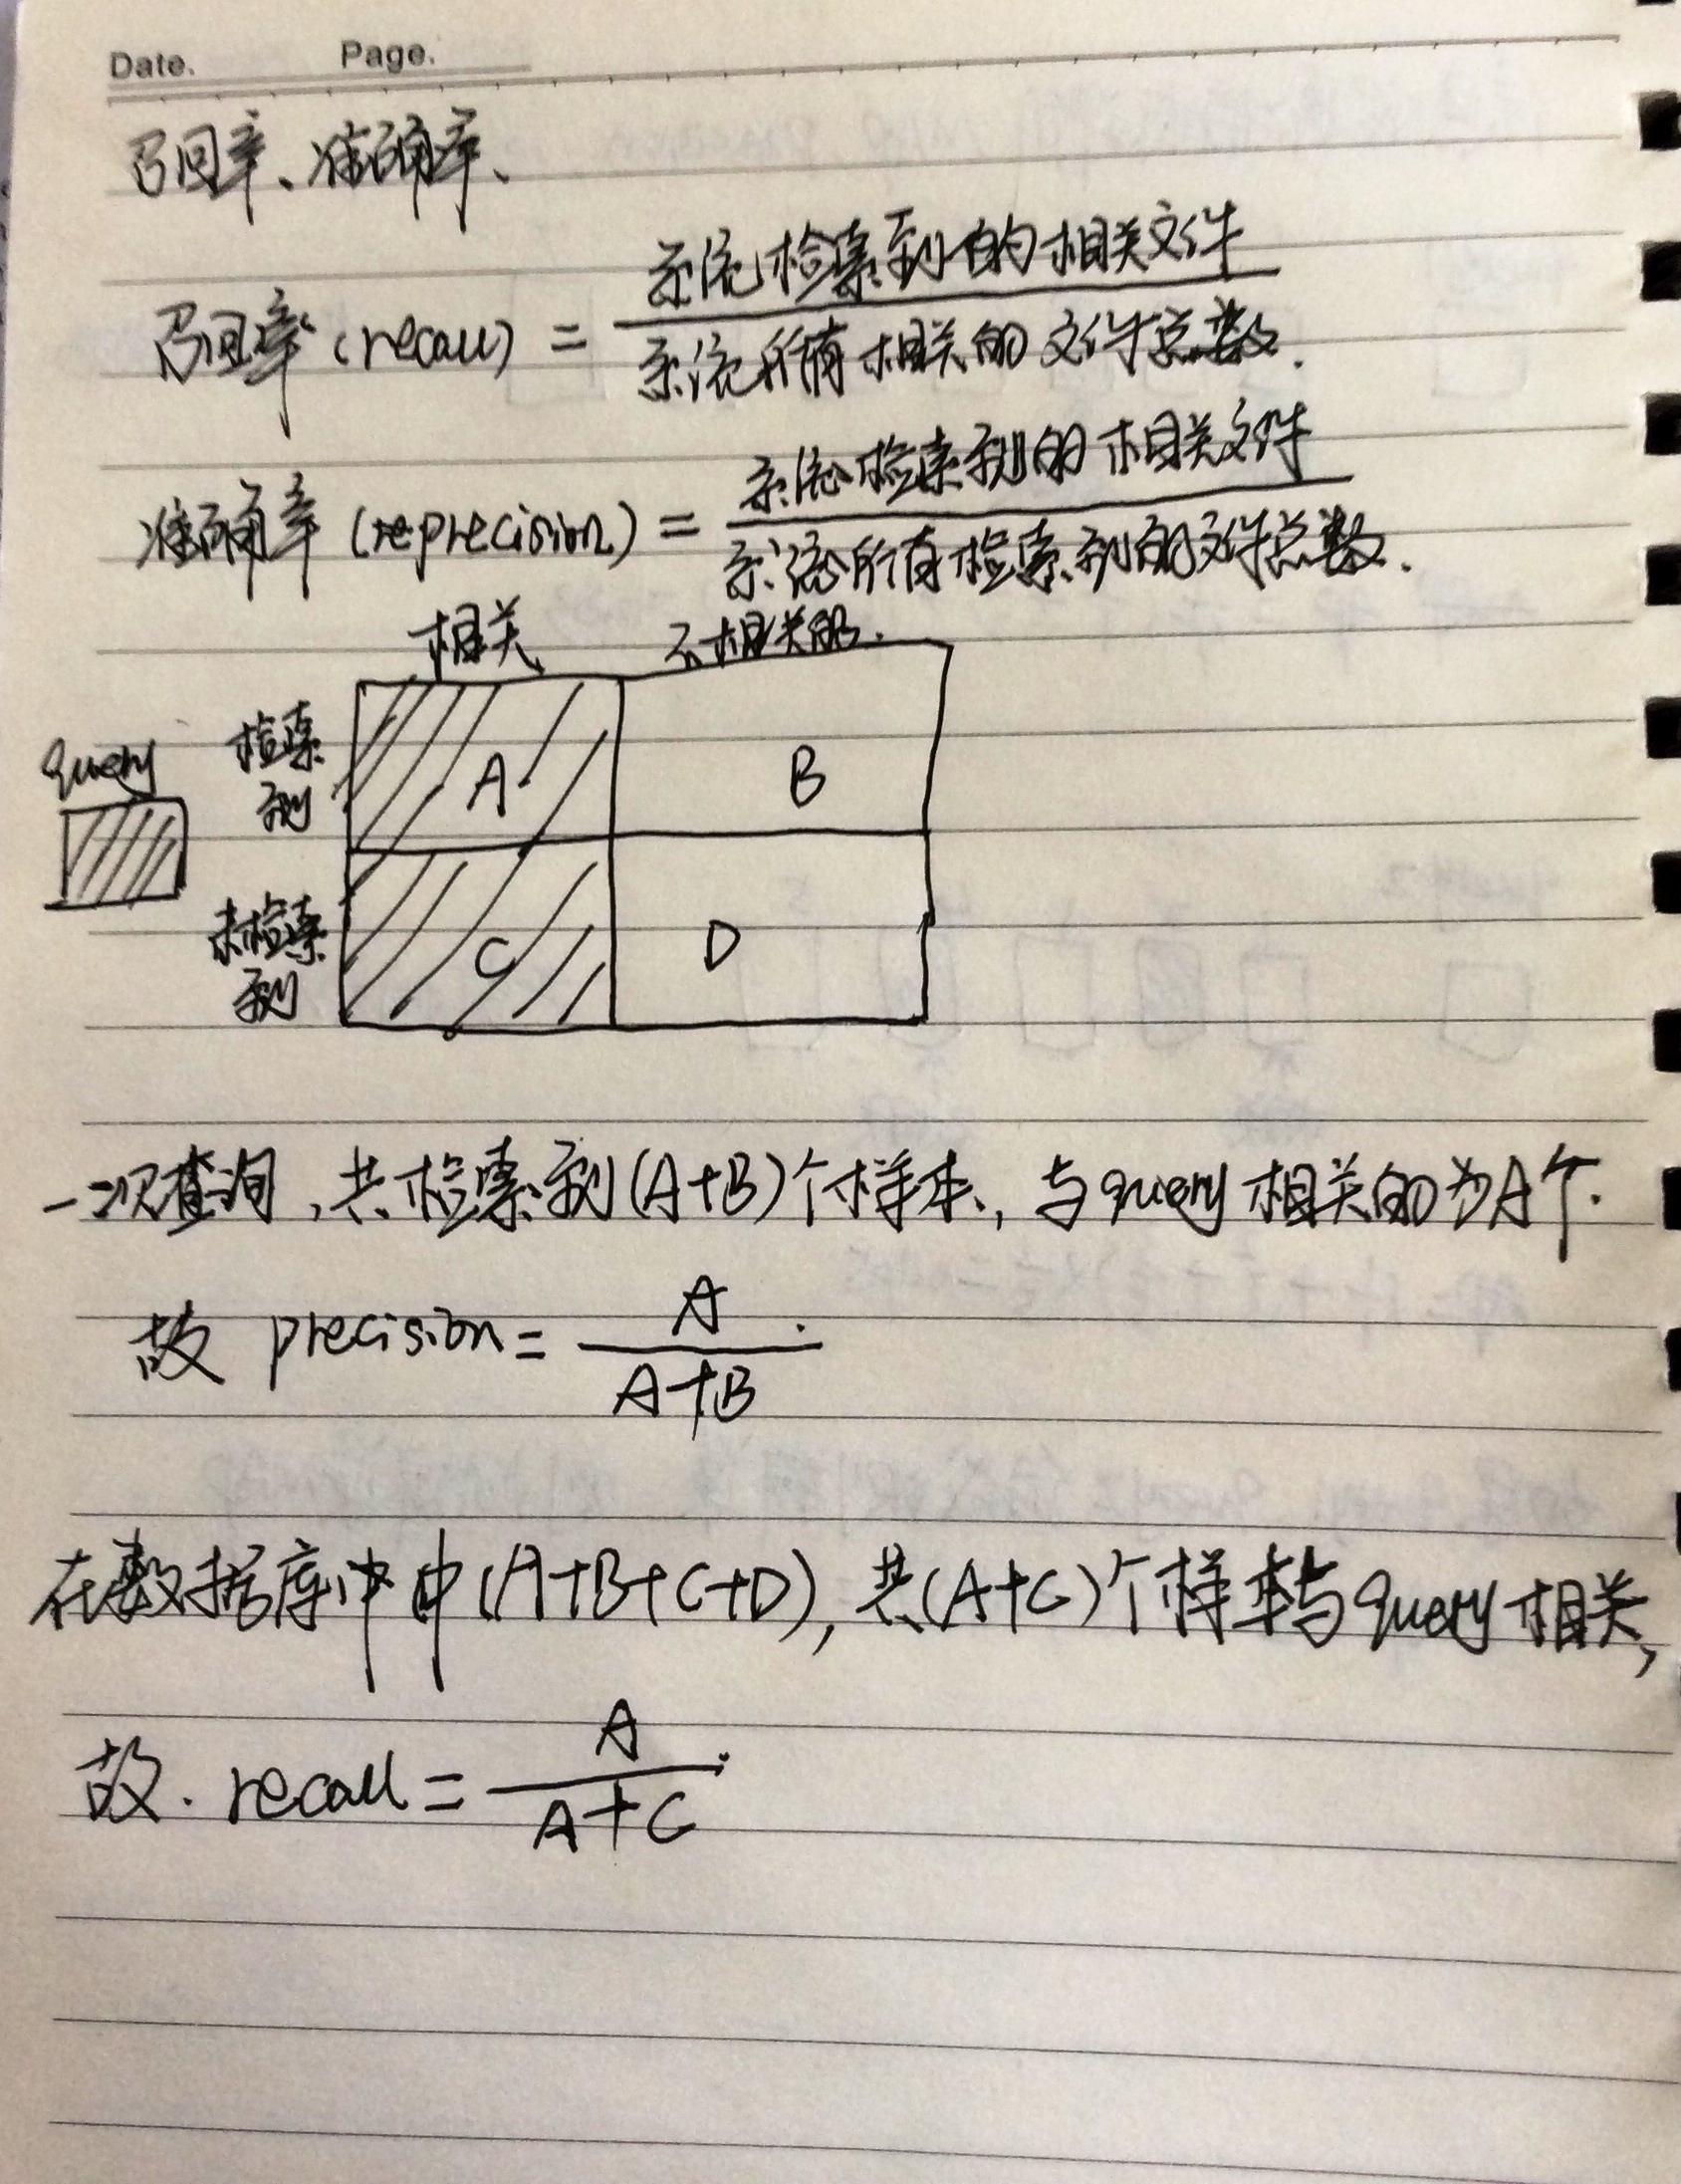 Date. Page.
召回率、准确率、
召回率 (recall) = 系统检索到的相关文件 / 系统所有相关的文件总数.
准确率 (reprecision) = 系统检索到的相关文件 / 系统所有检索到的文件总数.
相关 不相关的.
query 检索到 A B
未检索到 C D
一次查询,共检索到(A+B)个样本,与query相关的为A个.
故 precision = A / A+B
在数据库中中(A+B+C+D),共(A+C)个样本与query相关,
故. recall = A / A+C